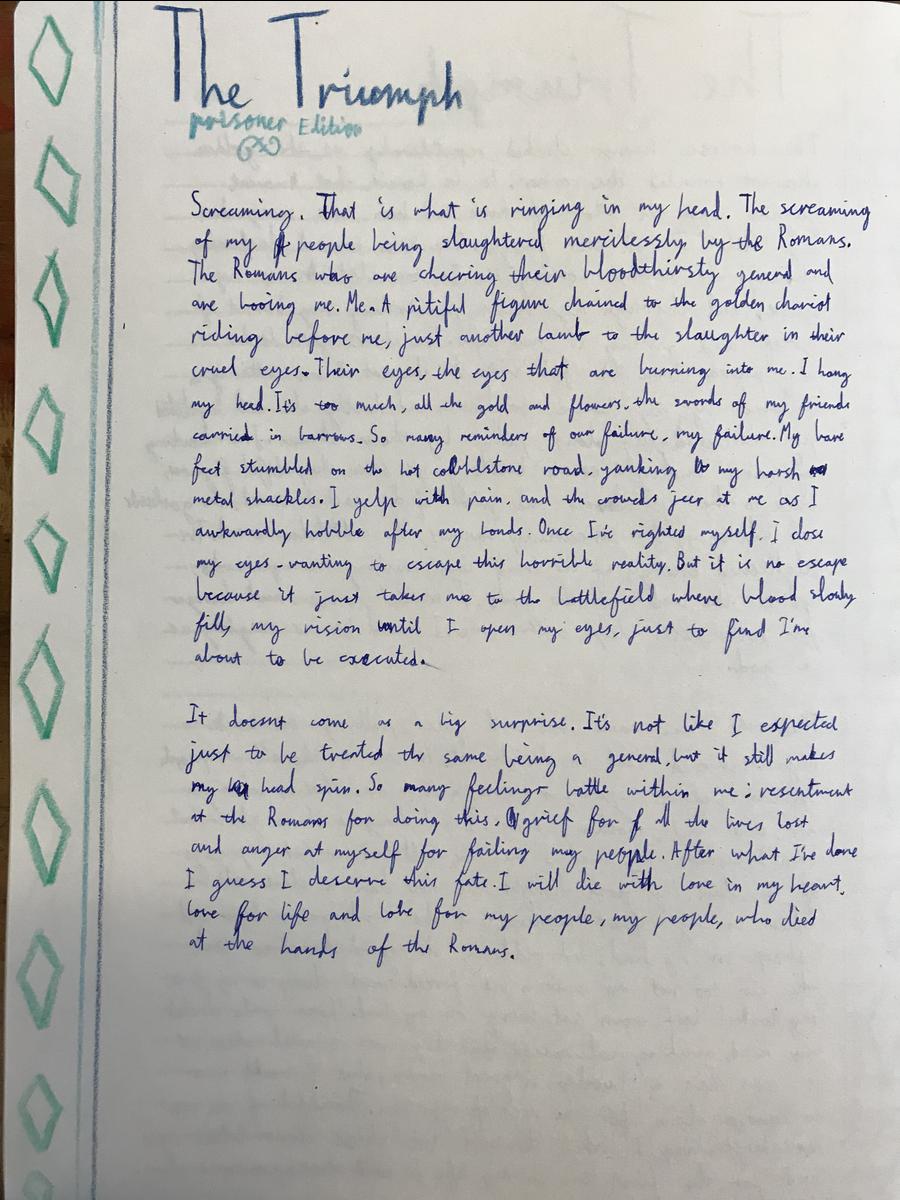 The Triumph
prisoner Edition
Screaming. That is what is ringing in my head. The screaming
of my people being slaughtered mercilessly by the Romans.
The Romans who are cheering their bloodthirsty general and
are booing me. Me. A pitiful figure chained to the golden chariot
riding before me, just another lamb to the slaughter in their
cruel eyes. Their eyes, the eyes that are burning into me. I hang
my head. It's too much, all the gold and flowers, the swords of my friends
carried in barrows. So many reminders of our failure, my failure. My bare
feet stumbled on the hot cobblstone road, yanking my harsh
metal shackles. I yelp with pain, and the crowds jeer at me as I
awkwardly hobble after my bonds. Once I've righted myself, I close
my eyes - wanting to escape this horrible reality. But it is no escape
because it just takes me to the battlefield where blood slowly
fills my vision until I open my eyes, just to find I'm
about to be executed.
It doesnt come as a big surprise. It's not like I expected
just to be treated the same being a general, but it still makes
my head spin. So many feelings battle within me; resentment
at the Romans for doing this, grief for all the lives lost
and anger at myself for failing my people. After what I've done
I guess I deserve this fate. I will die with love in my heart,
love for life and love for my people, my people, who died
at the hands of the Romans.